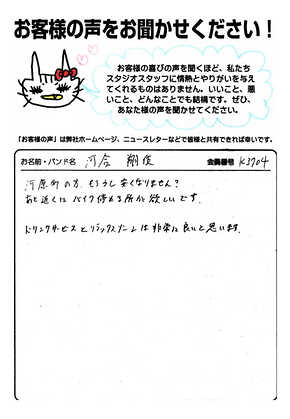 お客様の声をお聞かせください！
お客様の喜びの声を聞くほど、私たち
スタジオスタッフに情熱とやりがいを与え
てくれるものはありません。いいこと、悪
いこと、どんなことでも結構です。ぜひ、
あなた様の声を聞かせてください。
「お客様の声」は弊社ホームページ、ニュースレターなどで皆様と共有できれば幸いです。
お名前・バンド名 河合 翔俊 会員番号 K3704
河原町の方、もう少し安くなりません？
あと近くにバイク停める所が欲しいです。
ドリンクサービスとリラックスルームは非常に良いと思います。